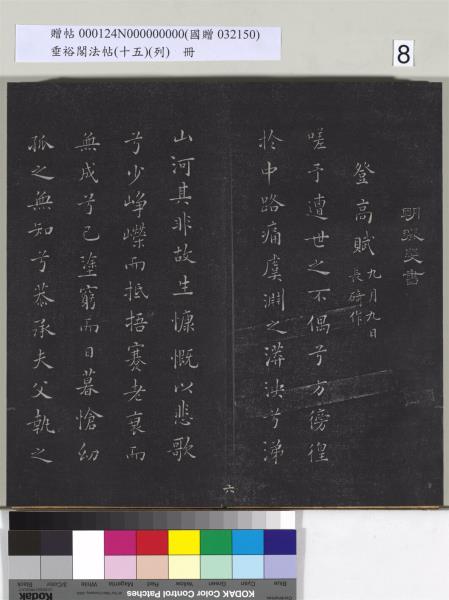 贈帖 000124N000000000(國贈 032150)
垂裕閣法帖(十五)(列) 冊
8
明張燮書
登高賦 九月九日
長碕作
嗟予遭世之不偶兮方傍徨
於中路痛虞淵之漭泱兮涕
山河其非故生慷慨以悲歌
兮少崢嶸而抵捂蹇老衰而
無成兮已塗窮而日暮愴幼
孤之無知兮恭承夫父執之
六
Kodak
KODAK Color Control Patches
Blue
Cyan
Green
Yellow
Red
Magenta
White
3/Color
Black